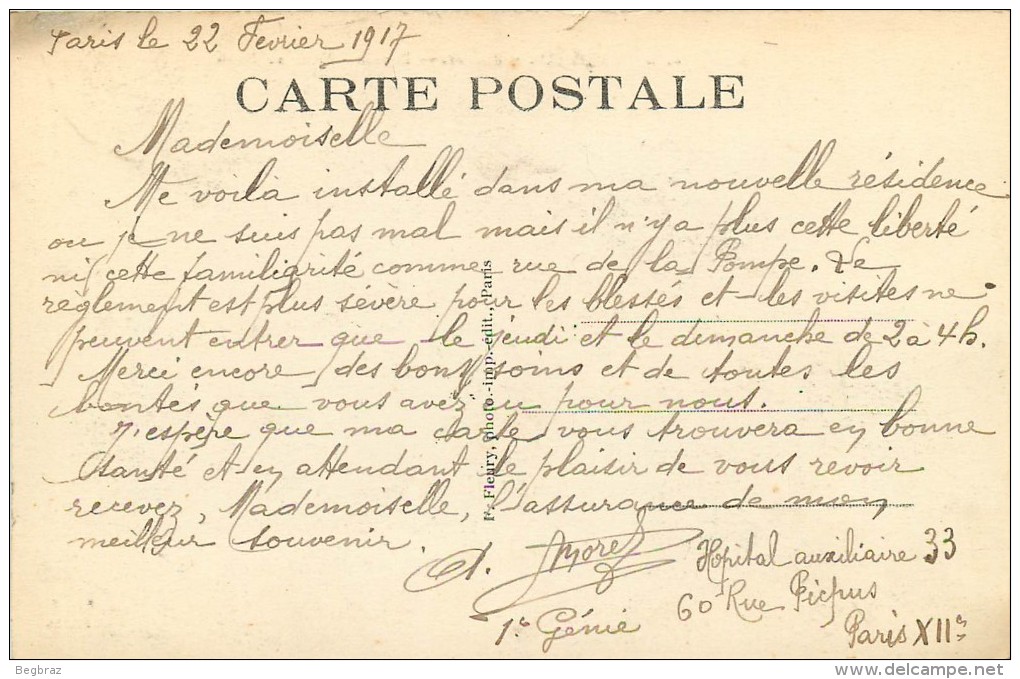 Paris le 22 Fevrier 1917
CARTE POSTALE
Mademoiselle
Me voila installé dans ma nouvelle résidence
ou je ne suis pas mal mais il n'y a plus cette liberté
ni cette familiarité comme rue de la Pompe. Le
règlement est plus sévère pour les blessés et les visites ne
peuvent entrer que le jeudi et le dimanche de 2 à 4 h.
Merci encore des bons soins et de toutes les
bontés que vous avez eu pour nous.
J'espère que ma carte vous trouvera en bonne
santé et en attendant le plaisir de vous revoir
recevez, Mademoiselle, l'assurance de mon
meilleur souvenir.
A. Morel
1er Génie
Hopital auxiliaire 33
60 Rue Picpus
Paris XIIe
F. Fleury, photo.-imp.-édit., Paris
Begbraz
www.delcampe.net